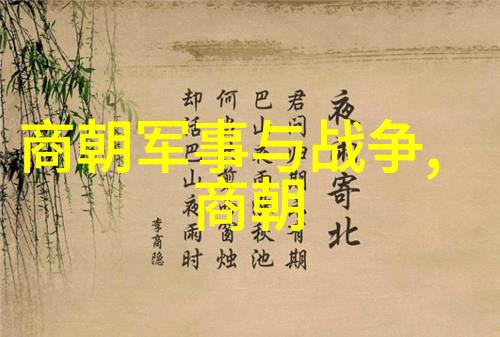 商朝军事与战争,
商朝
夜雨寄北
君问归期有期
巴山夜雨秋池
何当剪窗烛
却话巴山夜雨时
李商隐